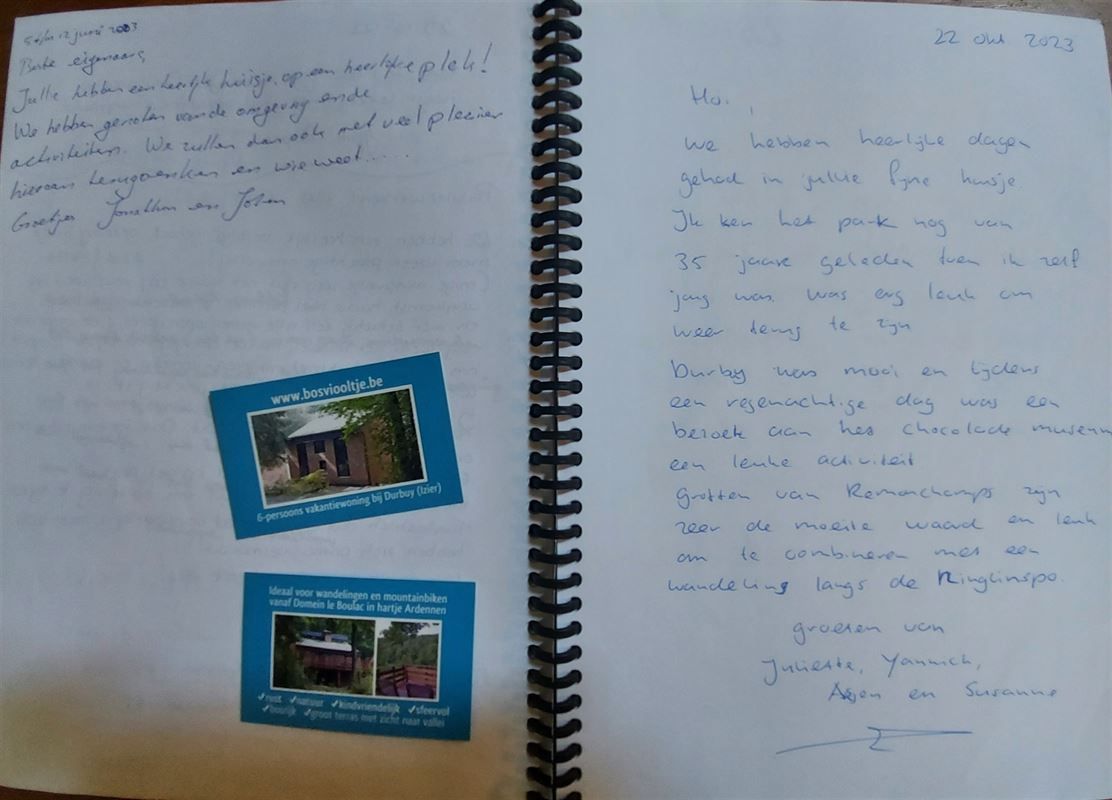 5 t/m 12 juni 2023
Beste eigenaars,
Jullie hebben een heerlijk huisje, op een heerlijke plek!
We hebben genoten van de omgeving en de
activiteiten. We zullen dan ook met veel plezier
hieraan terugdenken en wie weet.....
Groetjes Jonathan en
www.bosviooltje.be
6-persoons vakantiewoning bij Durbuy (Izier)
Ideaal voor wandelingen en mountainbiken
vanaf Domein le Boulac in hartje Ardennen
✓rust ✓natuur ✓kindvriendelijk ✓sfeervol
✓bosrijk ✓groot terras met zicht naar vallei
22 okt 2023
Hoi,
We hebben heerlijke dagen
gehad in jullie fijne huisje.
Ik ken het park nog van
35 jaar geleden toen ik zelf
jong was. was erg leuk om
weer terug te zijn
Durbuy was mooi en tijdens
een regenachtige dag was een
bezoek aan het chocolade museum
een leuke activiteit
Grotten van Remonchamps zijn
zeer de moeite waard en leuk
om te combineren met een
wandeling langs de Ninglinspo.
groeten van
Juliette, Yannick,
Arjen en Susanne